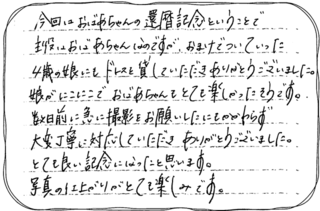 今回はおばあちゃんの還暦記念ということで
主役はおばあちゃんなのですが、おまけでついていった
4歳の娘にもドレスを貸していただきありがとうございました。
娘がにこにこで おばあちゃんもとても楽しかったそうです。
数日前に急に撮影をお願いしたにもかかわらず
大変丁寧に対応していただき ありがとうございました。
とても良い記念になったことと思います。
写真の仕上がりがとても楽しみです。